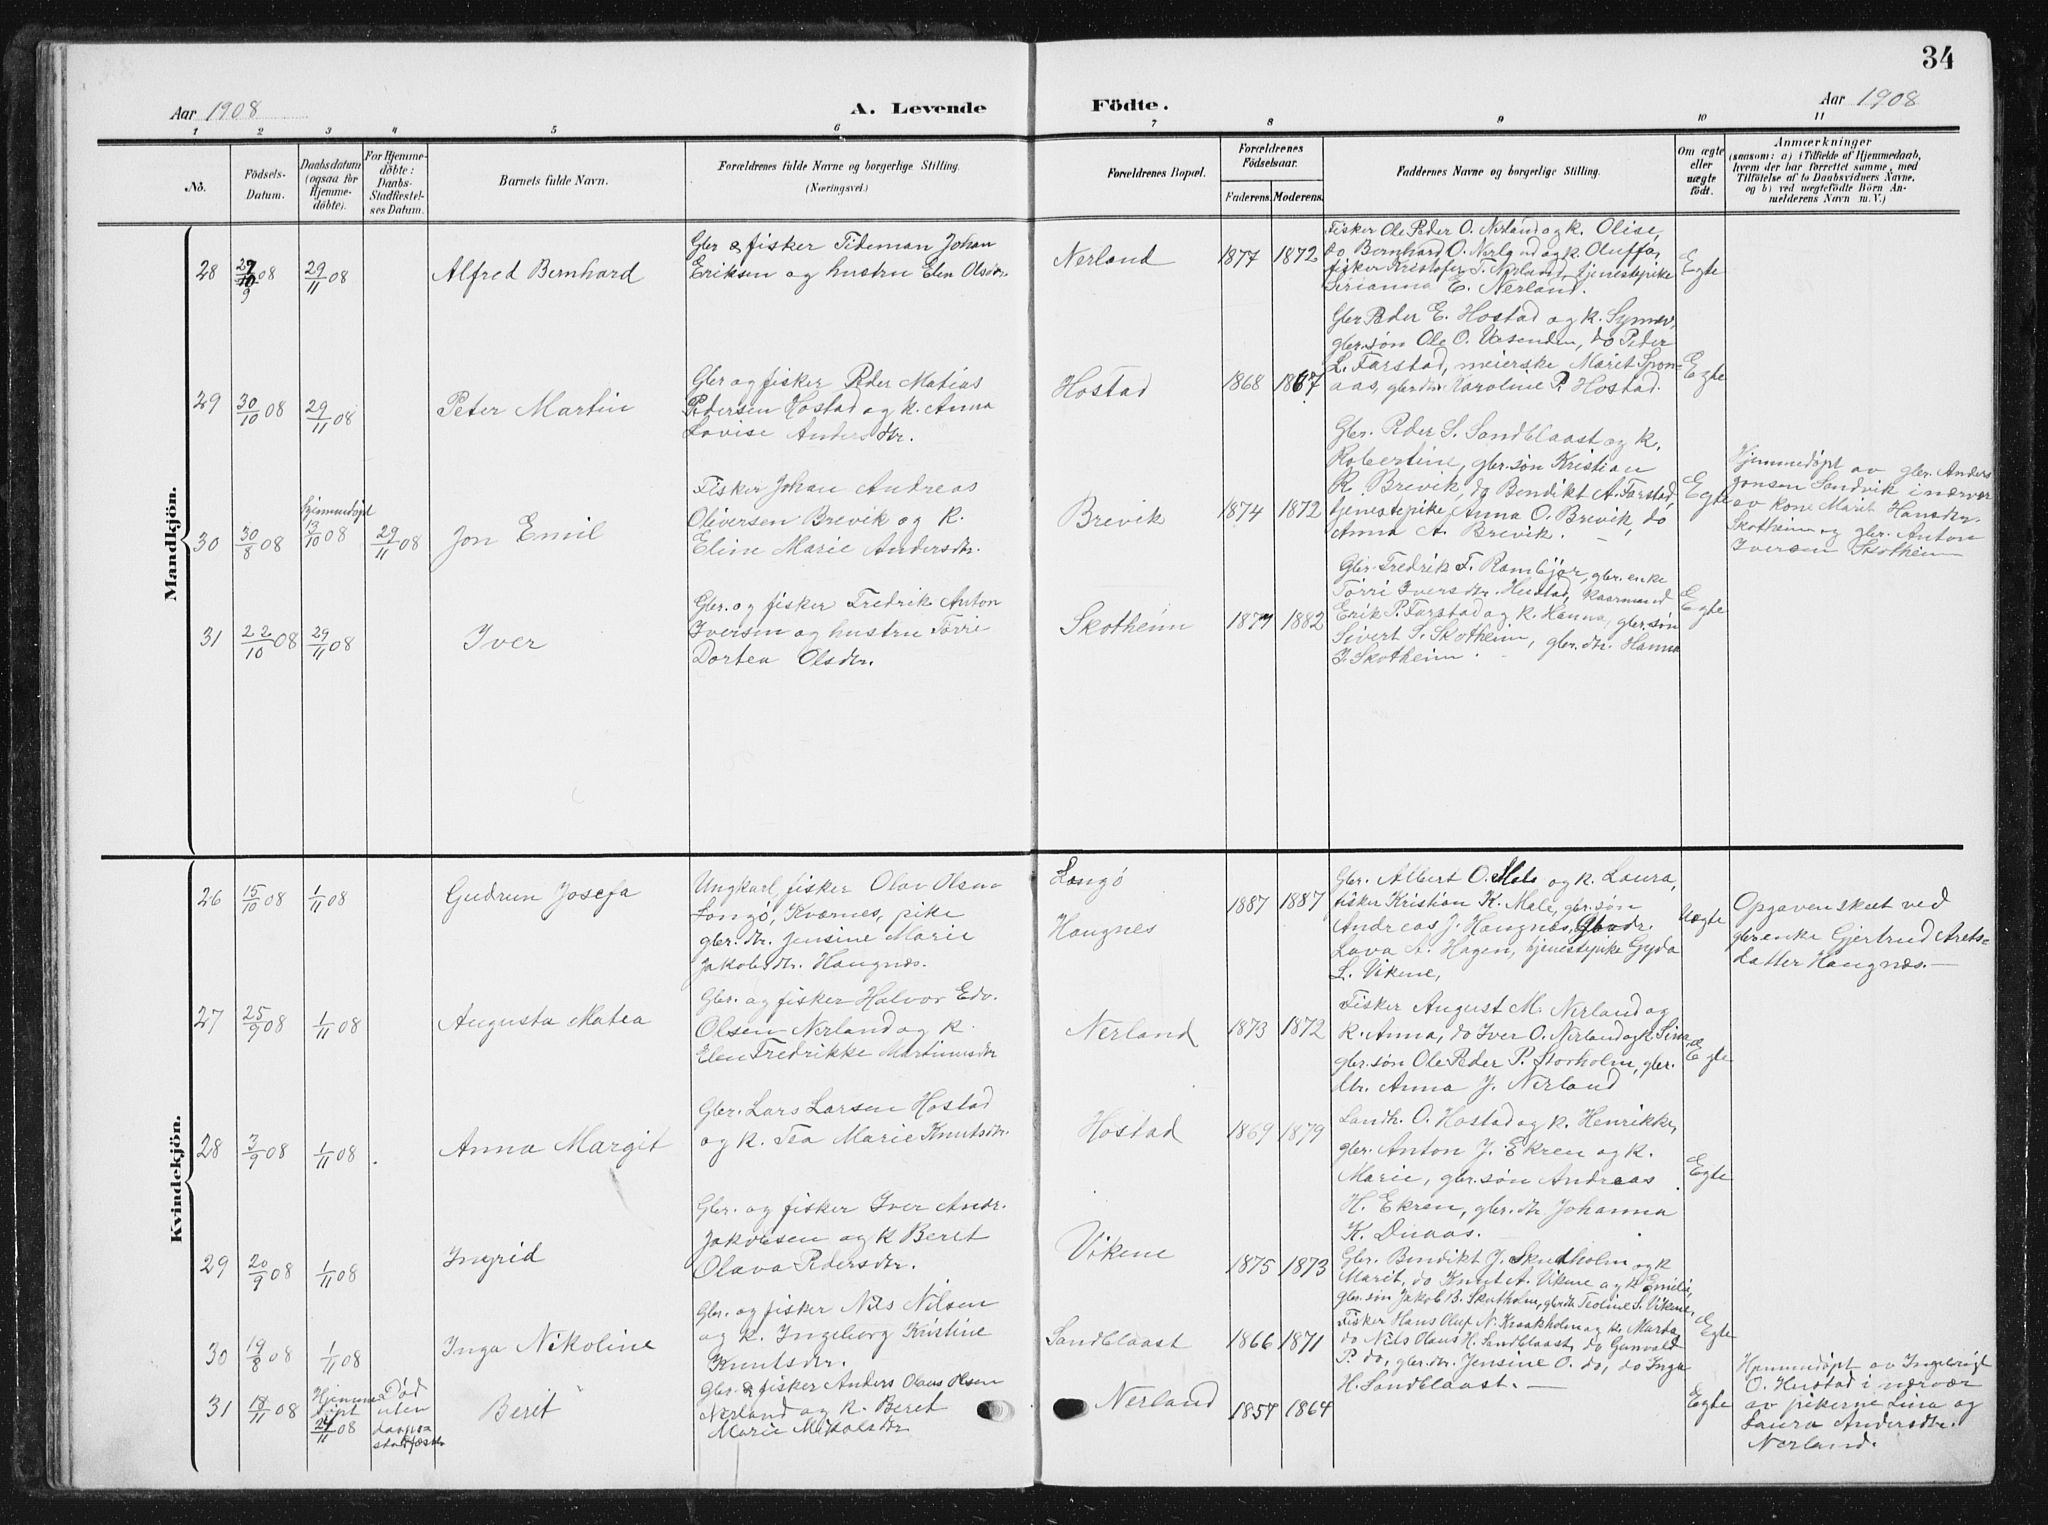 34
Aar 1908
A. Levende
Födte.
Aar 1908
1 2 3 4 5 6 7 8 9 10 11
No.
Födsels-
Datum.
Daabsdatum
(ogsaa for
Hjemme-
döbte).
For Hjemme-
döbte:
Daabs-
Stadfæstel-
ses Datum.
Barnets fulde Navn.
Forældrenes fulde Navne og borgerlige Stilling.
(Næringsvei.)
Forældrenes Bopæl.
Forældrenes
Födselsaar.
Faderens. Moderens.
Faddernes Navne og borgerlige Stilling.
Om ægte
eller
uægte
födt.
Anmærkninger
(saasom: a) i Tilfælde af Hjemmedaab,
hvem der har forrettet samme, med
Tilföielse af to Daabsvidners Navne,
og b) ved uægtefödte Börn An-
melderens Navn m. V.)
Mandkjön.
28
29/11 08
Alfred Bernhard
Gbr & fisker Tideman Johan
Eriksen og hustru Elen Olsdtr.
Nerland
1877 1872
Fisker Ole Peder O. Nerland og k. Olise,
do Bernhard O. Nerland og k. Oluffa,
fisker Kristofer T. Nerland, tjenestepike
E. Nerland.
Egte
29
30/10 08
29/11 08
Peter Martin
Gbr og fisker Peder Matias
Pedersen Hostad og k. Anna
Lovise Andersdtr.
Hostad
1868 1867
Gbr Peder E. Hostad og k. Synnøv,
gbr.søn Ole O. Vasenden, do Peder
L. Farstad, meierske Marit Spon-
aas, gbrdtr. Karoline P. Hostad.
Egte
30
30/8 08
Hjemmedøpt
13/10 08
29/11 08
Jon Emil
Fisker Johan Andreas
Oliversen Brevik og k.
Eline Marie Andersdtr.
Brevik
1874 1872
Gbr. Peder S. Sandblaast og k.
Robertine, gbr.søn Kristian
R. Brevik, do Bendikt A. Farstad,
tjenestepike Anna O. Brevik, do
Anna A. Brevik. —
Egte
Hjemmedøpt av gbr. Anders
Jonsen Sandvik i nærvær
av kone Marit Hansdtr.
Skotheim og gbr. Anton
Iversen Skotheim
31
22/10 08
29/11 08
Iver
Gbr. og fisker Fredrik Anton
Iversen og hustru Torri
Dortea Olsdtr.
Skotheim
1877 1882
Gbr. Fredrik F. Rambjør, gbr. enke
Torri Iversdtr. Hustad, kaarmand
Erik P. Farstad og k. Hanna, gbr.søn
Sivert S. Skotheim, gbr.dtr. Hanna
I. Skotheim.
Egte
Kvindekjön.
26
15/10 08
1/11 08
Gudrun Josefa
Ungkarl, fisker Olav Olsen
Langö, Kværnes, pike
gbr. dtr. Jensine Marie
Jakobsdtr. Haugnæs.
Langö
Haugnes
1887 1887
Gbr. Albert O. Male og k. Laura,
fisker Kristian K. Male, gbr.søn
Andreas J. Haugnæs, Gbrdr.
Lava A. Hagen, tjenestepike Gyda
L. Vikene,
Uegte
Opgaven skeet ved
gbrenke Gjertrud Arets-
datter Haugnæs. —
27
25/9 08
1/11 08
Augusta Matea
Gbr. og fisker Halvor Edv.
Olsen Nerland og k.
Elen Fredrikke Martinusdtr
Nerland
1873 1872
Fisker August M. Nerland og
k. Anna, do Iver O. Nerland og k. Sina,
gbr.søn Ole Peder P. Storholm, gbr.
dtr. Anna J. Nerland
Egte
28
3/9 08
1/11 08
Anna Margit
Gbr. Lars Larsen Hostad
og k. Tea Marie Knutsdtr.
Hostad
1869 1879
Landh. O. Hostad og k. Henrikke,
gbr. Anton J. Ekren og k.
Marie, gbr.søn Andreas
H. Ekren, gbr.dtr. Johanna
K. Duaas.
Egte
29
20/9 08
1/11 08
Ingrid
Gbr. og fisker Iver Andr.
Jakobsen og k Beret
Olava Pedersdtr.
Vikene
1875 1873
Gbr. Bendikt J. Skutholm og k
Marit, do Knut A. Vikene og k Emilie,
gbr.søn Jakob B. Skutholm, gbrdtr Teoline S. Vikene,
30
19/8 08
1/11 08
Inga Nikoline
Gbr. og fisker Nils Nilsen
og k. Ingeborg Kristine
Knutsdtr.
Sandblaast
1866 1871
Fisker Hans Oluf N. Kraakholm og k. Marta,
do Nils Olaus H. Sandblaast, do Gunvald
P. do, gbr.dtr. Jensine O. do, do Inga
H. Sandblaast. —
Egte
31
18/11 08
Hjemme-
døpt
24/11 08
Død
uten
daapsa
stadfæstet
Beret
Gbr. & fisker Anders Olaus Olsen
Nerland og k. Beret
Marie Mikalsdtr
Nerland
1857 1864
Egte
Hjemmedøpt av Ingebrigt
O. Hustad i nærvær
av pikerne Lina og
Laura Andersdtr.
Nerland.